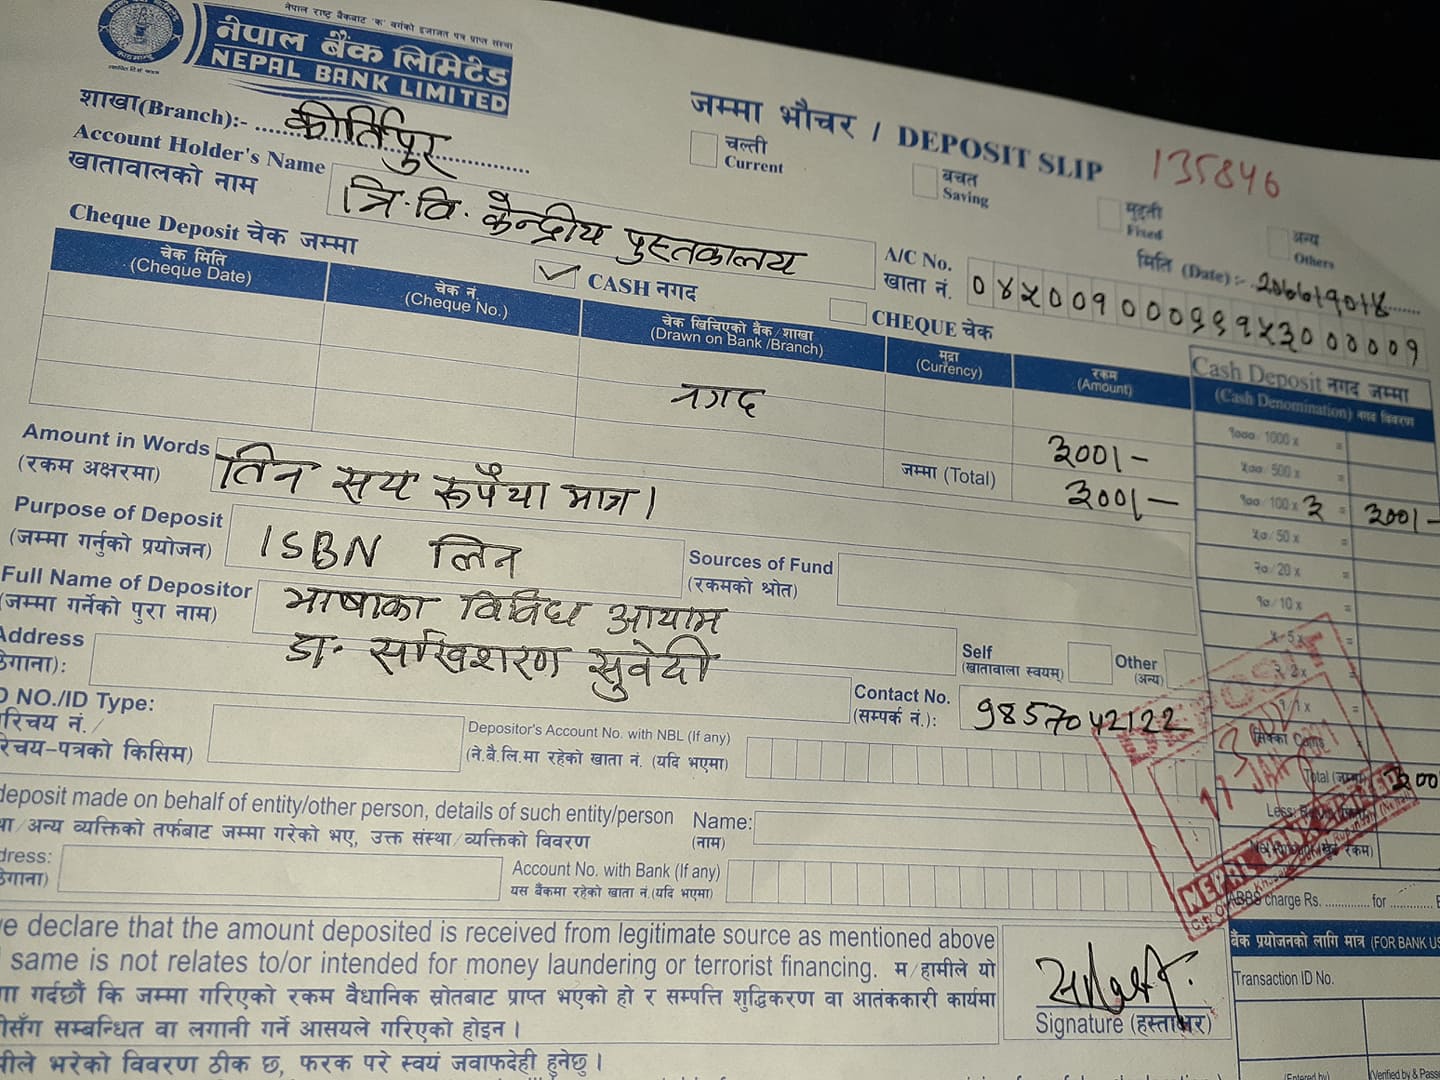 नेपाल राष्ट्र बैंकबाट 'क' वर्गको इजाजत पत्र प्राप्त संस्था
नेपाल बैंक लिमिटेड
NEPAL BANK LIMITED
शाखा(Branch):- कीर्तिपुर
जम्मा भौचर / DEPOSIT SLIP 135846
चल्ती
Current
बचत
Saving
मुद्दती
Fixed
अन्य
Others
Account Holder's Name
खातावालको नाम
त्रि.वि. केन्द्रीय पुस्तकालय
मिति (Date) :-
A/C No.
खाता नं.
Cheque Deposit चेक जम्मा
CASH नगद
CHEQUE चेक
चेक मिति
(Cheque Date)
चेक नं.
(Cheque No.)
चेक खिचिएको बैंक/शाखा
(Drawn on Bank /Branch)
मुद्रा
(Currency)
रकम
(Amount)
नगद
३००।-
जम्मा (Total) ३००।-
Cash Deposit नगद जम्मा
(Cash Denomination) नगद विवरण
१००० / 1000 x =
५०० / 500 x =
१०० / 100 x ३ = ३००।-
५० / 50 x =
२० / 20 x =
१० / 10 x =
५ 5 x =
२ 2 x =
१ 1 x =
सिक्का Coins
Total (जम्मा) ३००
Amount in Words
(रकम अक्षरमा)
तिन सय रूपैया मात्र।
Purpose of Deposit
(जम्मा गर्नुको प्रयोजन)
ISBN लिन
Sources of Fund
(रकमको श्रोत)
Full Name of Depositor
(जम्मा गर्नेको पुरा नाम)
भाषाका विविध आयाम
डा. सुवेदी
Self
(खातावाला स्वयम)
Other
(अन्य)
Address
ठेगाना):
Contact No.
(सम्पर्क नं.):
9857042122
D NO./ID Type:
रिचय नं./
रिचय-पत्रको किसिम)
Depositor's Account No. with NBL (If any)
(ने.बै.लि.मा रहेको खाता नं. (यदि भएमा)
deposit made on behalf of entity/other person, details of such entity/person
था/अन्य व्यक्तिको तर्फबाट जम्मा गरेको भए, उक्त संस्था/व्यक्तिको विवरण
Name:
(नाम)
dress:
ठेगाना)
Account No. with Bank (If any)
यस बैंकमा रहेको खाता नं.(यदि भएमा)
DEPOSIT
17 JAN
NEPAL BANK LIMITED
ABBS charge Rs. .............. for ............
e declare that the amount deposited is received from legitimate source as mentioned above
same is not relates to/or intended for money laundering or terrorist financing. म/हामीले यो
गर्दछौं कि जम्मा गरिएको रकम वैधानिक स्रोतबाट प्राप्त भएको हो र सम्पत्ति शुद्धिकरण वा आतंककारी कार्यमा
सँग सम्बन्धित वा लगानी गर्ने आसयले गरिएको होइन।
मीले भरेको विवरण ठीक छ, फरक परे स्वयं जवाफदेही हुनेछु।
Signature (हस्ताक्षर)
बैंक प्रयोजनको लागि मात्र (FOR BANK US
Transaction ID No.
(Entered by)
(Verified by & Passe